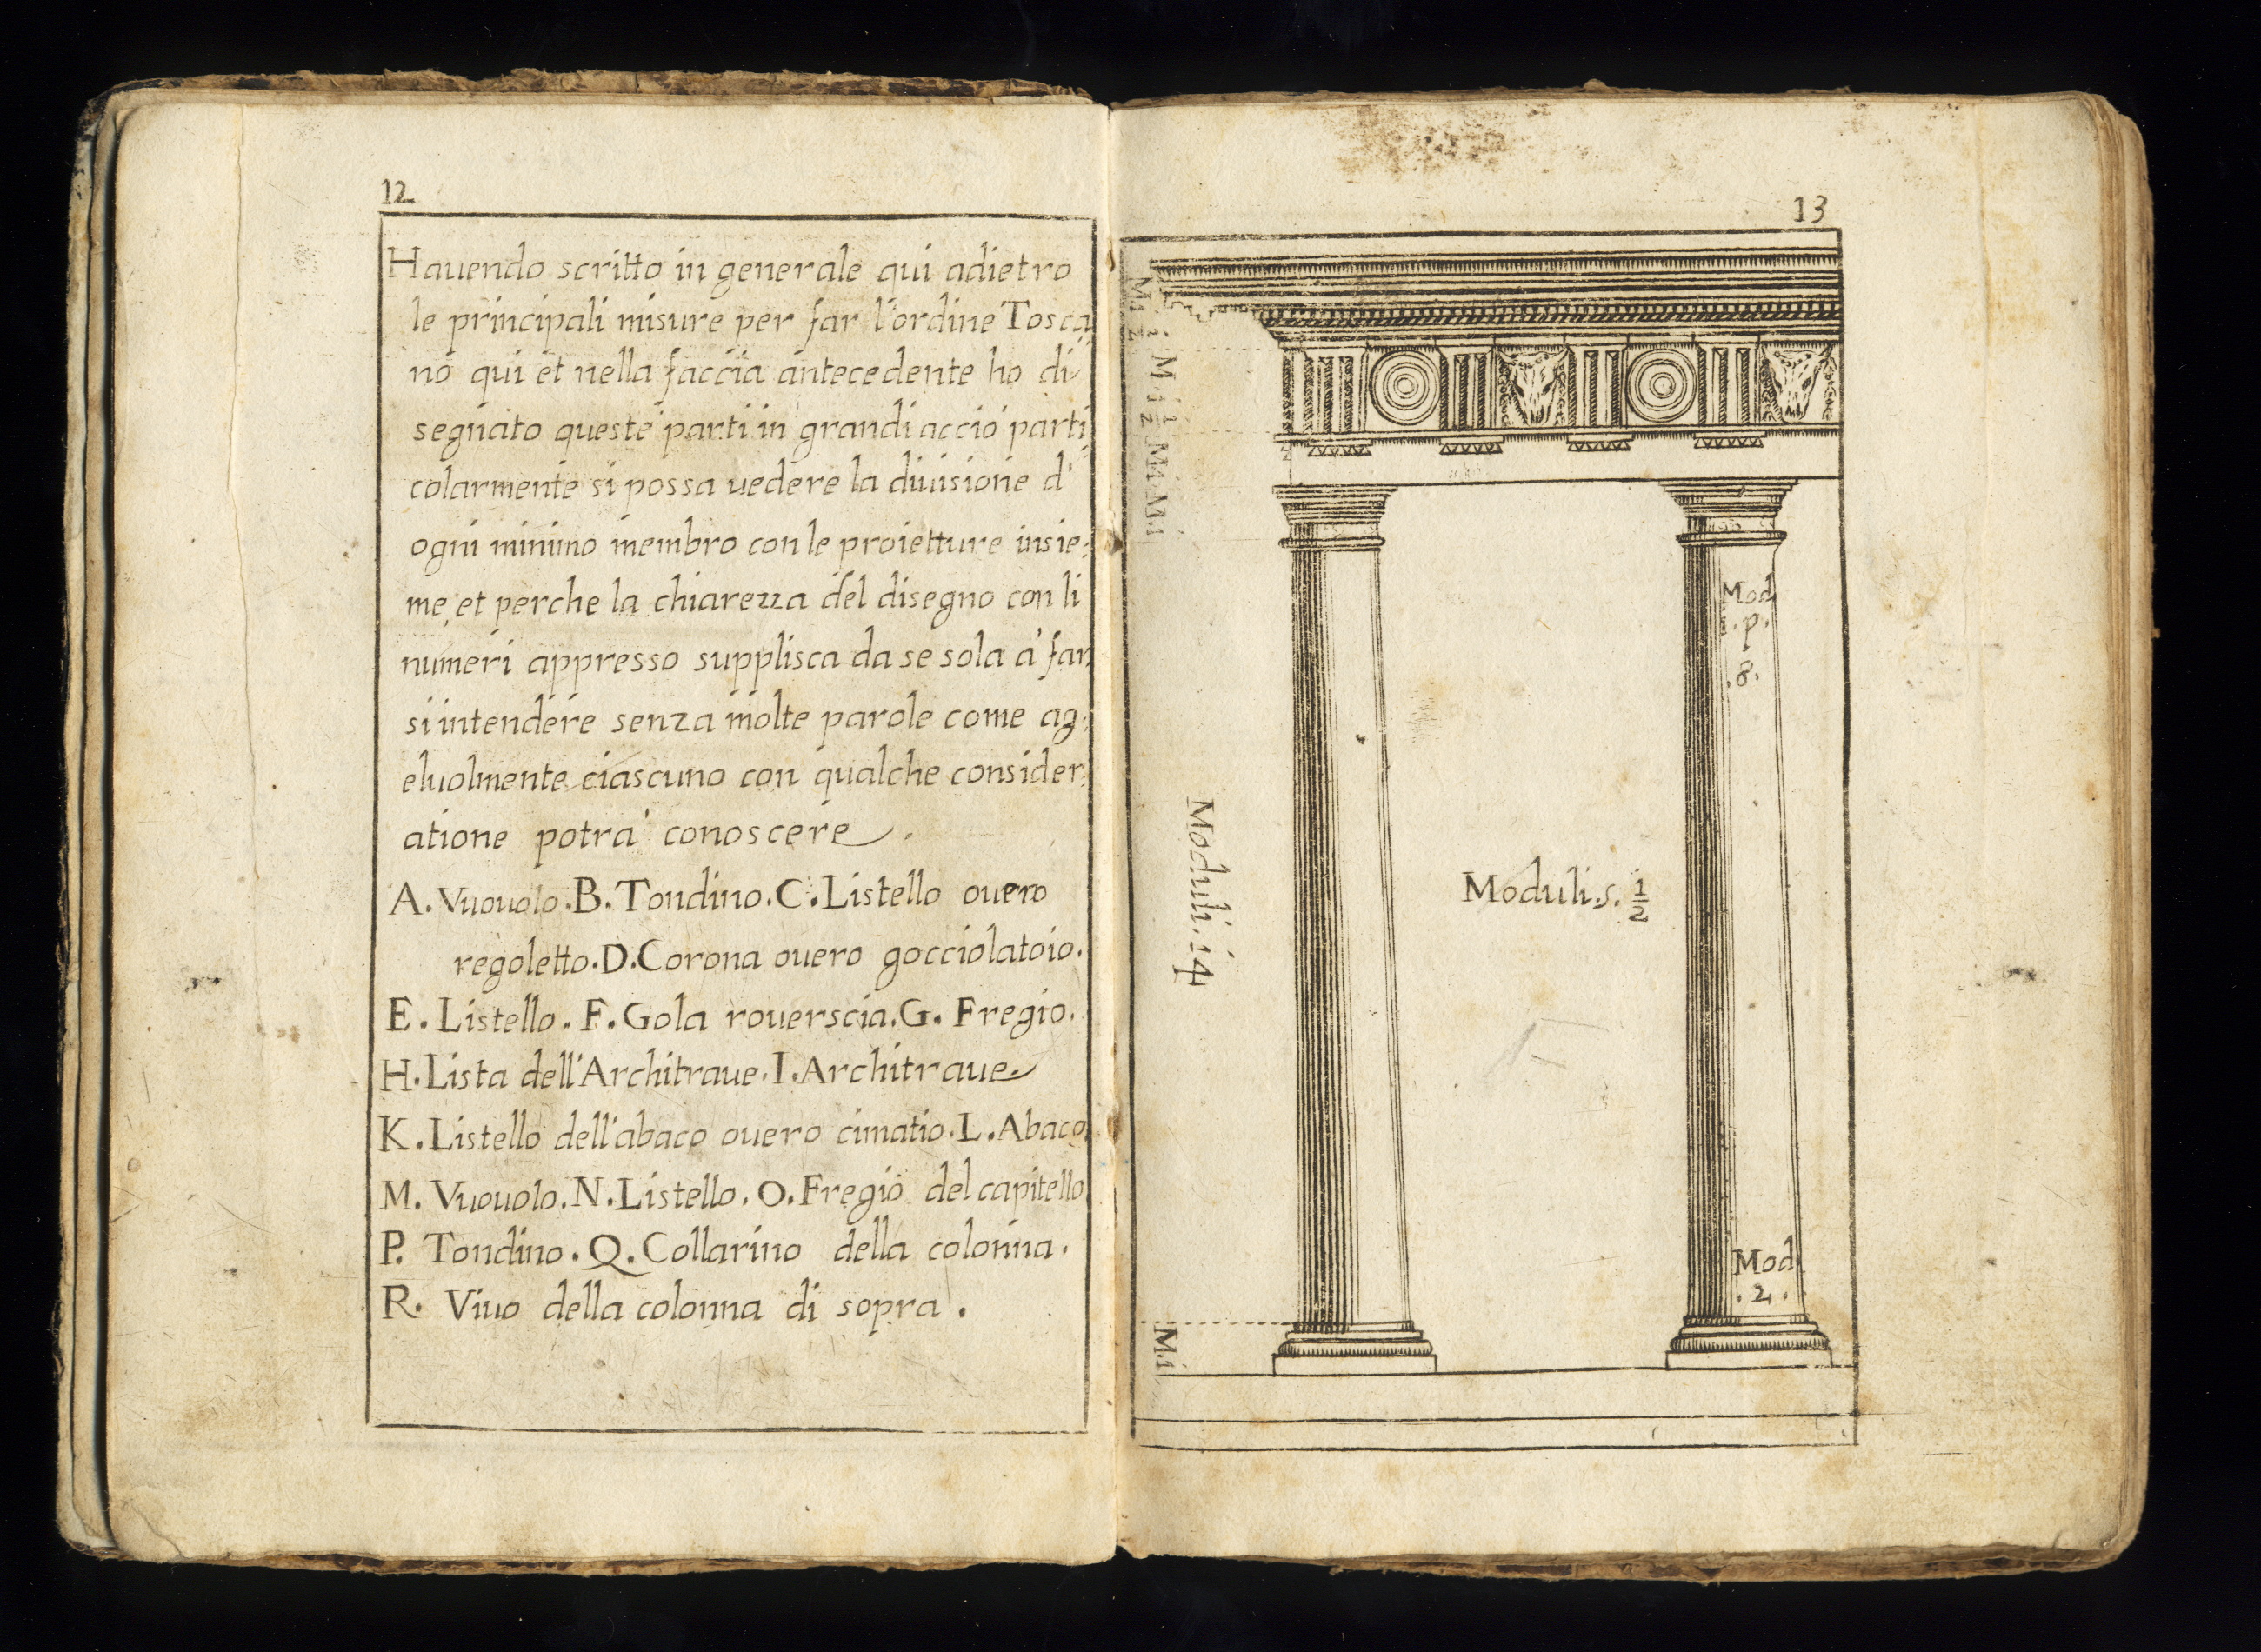 12
Hauendo scritto in generale qui adietro
le principali misure per far l'ordine Tosca
no qui et nella faccia antecedente ho di
segnato queste parti in grandi acciò parti
colarmente si possa uedere la diuisione d'
ogni minimo membro con le proietture insie:
me, et perche la chiarezza del disegno con li
numeri appresso supplisca da se sola à far
si intendere senza molte parole come ag:
eluolmente ciascuno con qualche consider:
atione potra' conoscere.
A. Vuouolo. B. Tondino. C. Listello ouero
regoletto. D. Corona ouero gocciolatoio.
E. Listello. F. Gola rouerscia. G. Fregio.
H. Lista dell'Architraue. I. Architraue.
K. Listello dell'abaco ouero cimatio. L. Abaco
M. Vuouolo. N. Listello. O. Fregio del capitello
P. Tondino. Q. Collarino della colonna.
R. Viuo della colonna di sopra.
13
M. i 1/2
M. i 1/2 . M. i . M. i
Mod
i. p.
.8.
Moduli. i4
Moduli. 5. 1/2
Mod
. 2 .
M. i